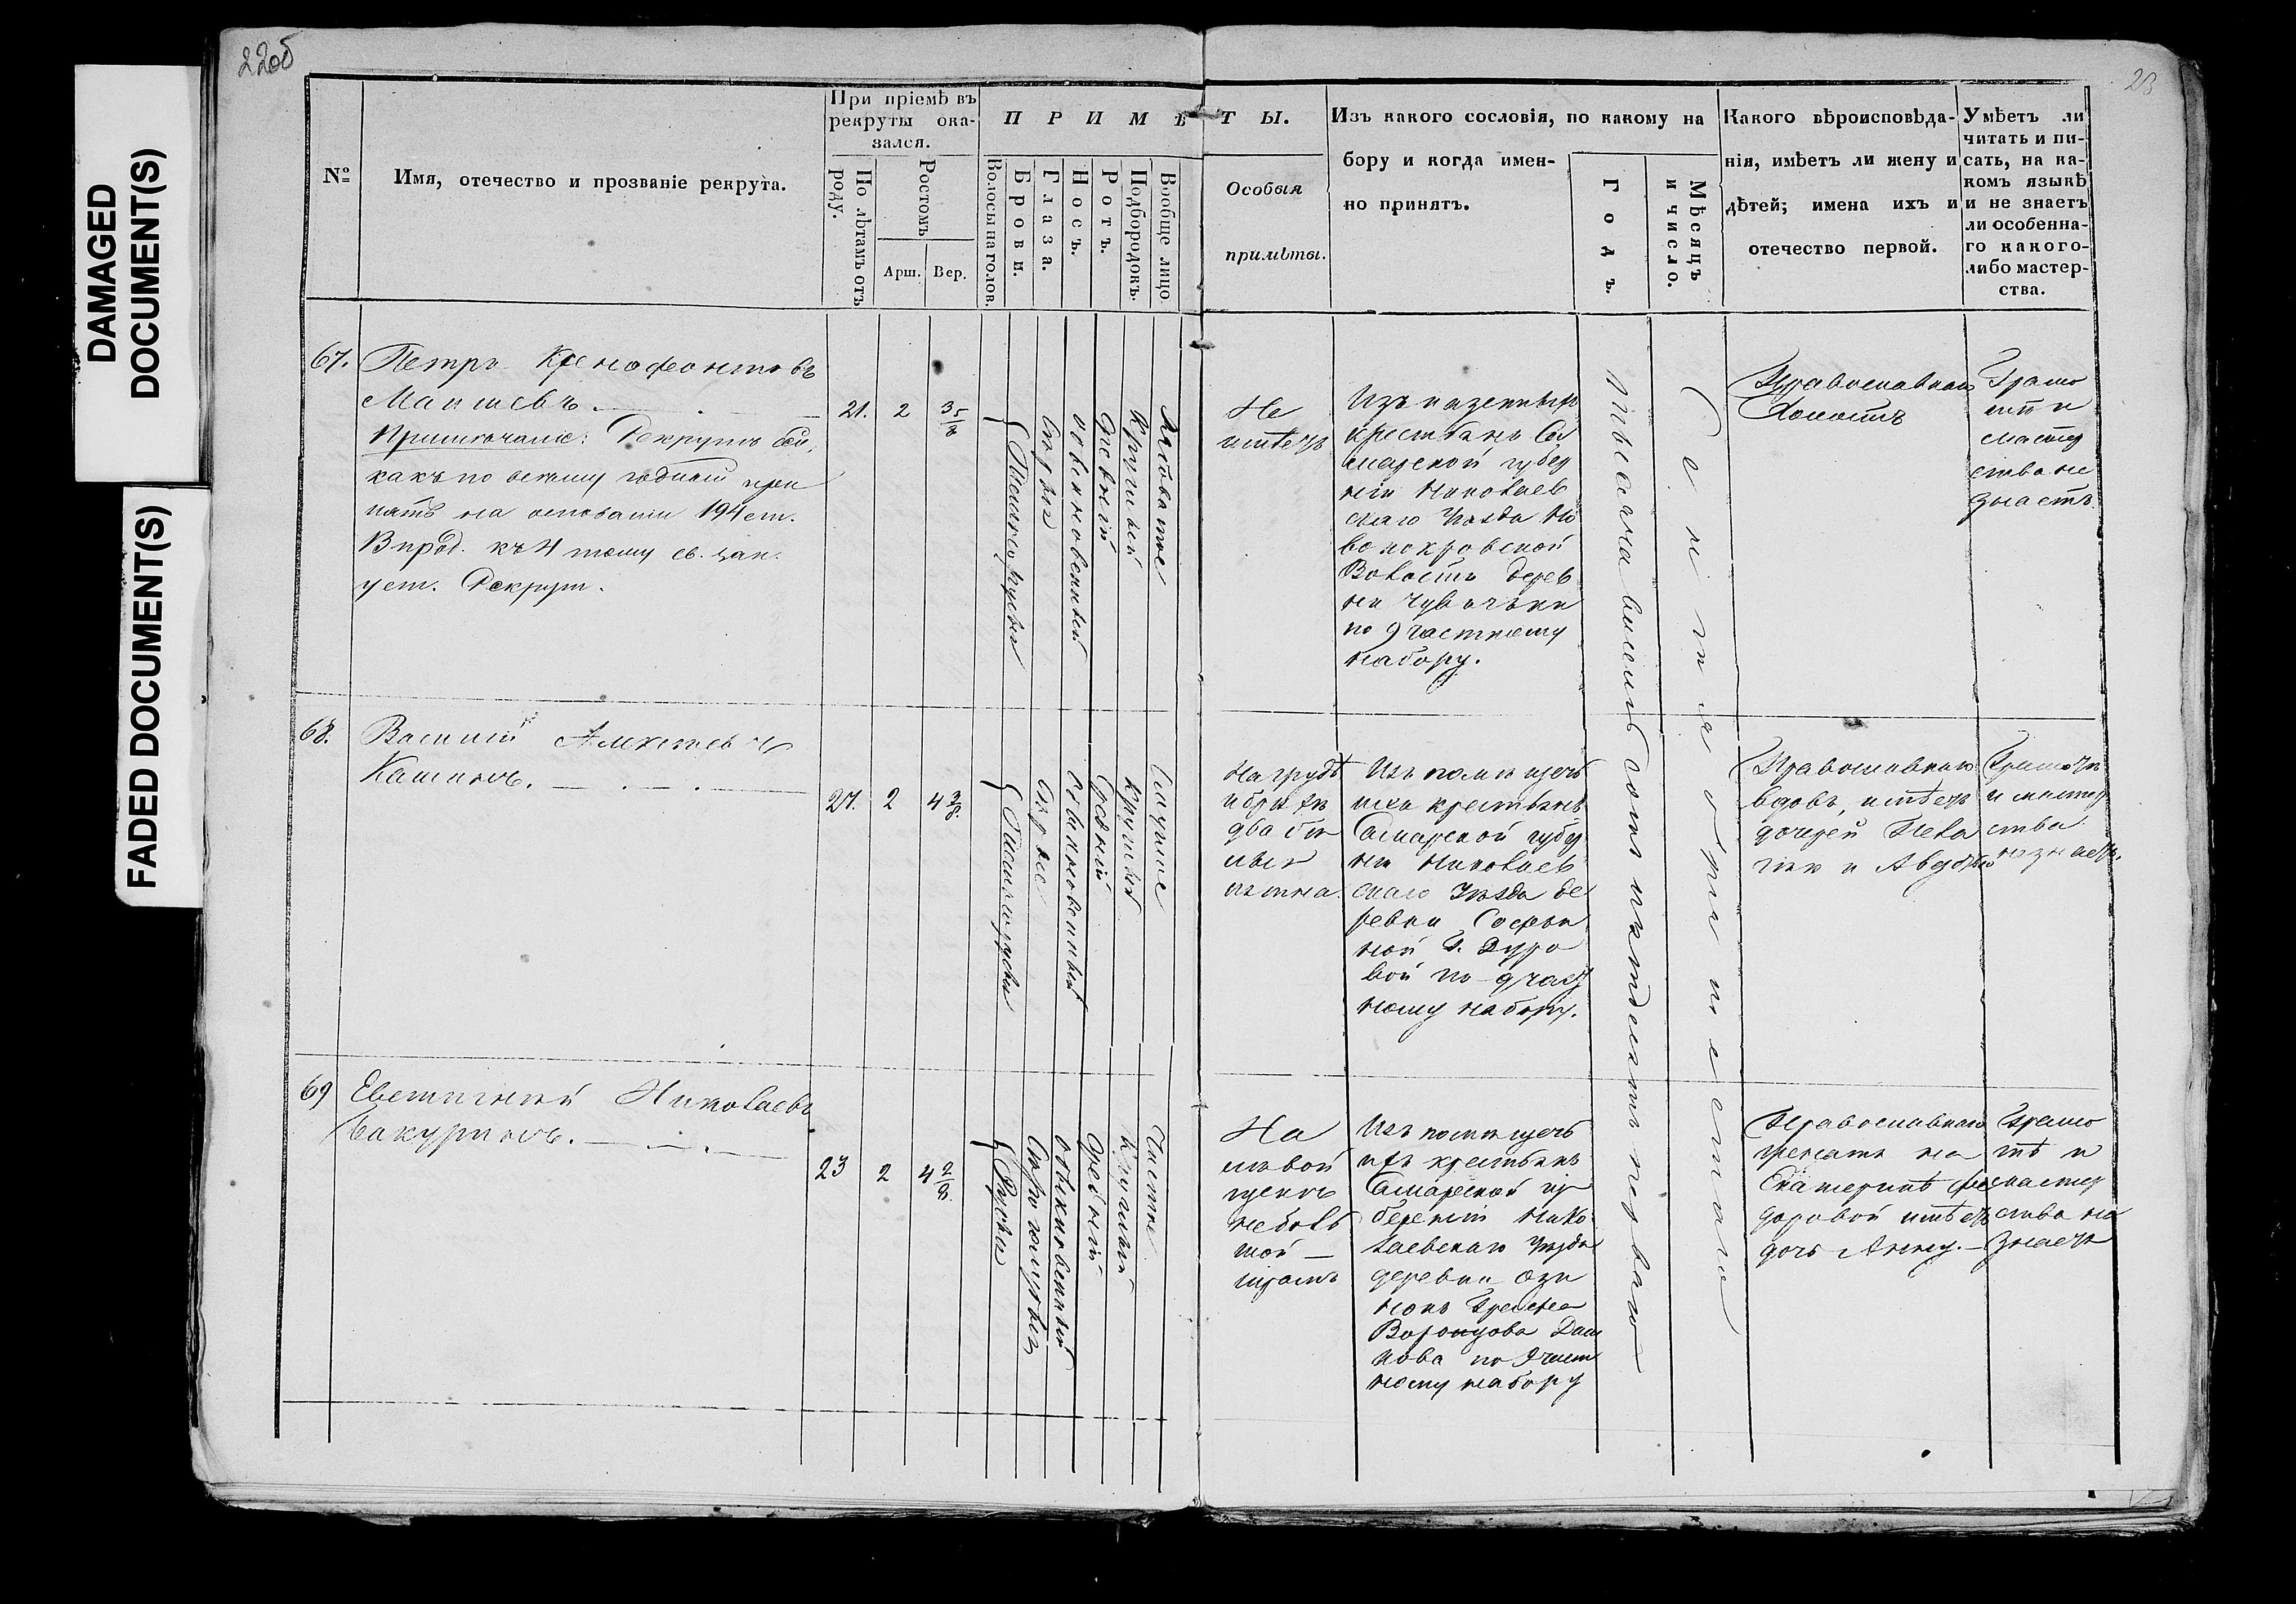 DAMAGED
DOCUMENT(S)
FADED DOCUMENT(S)
22об
23
№
Имя, отечество и прозваніе рекрута.
При пріемѣ въ
рекруты ока-
зался.
По лѣтамъ отъ
роду.
Ростомъ
Арш.
Вер.
ПРИМѢ
ТЫ.
Волосы на голов.
Брови.
Глаза.
Носъ.
Ротъ.
Подбородокъ.
Вообще лицо
Особыя
примѣты.
Изъ какого сословія, по какому на
бору и когда имен-
но принятъ.
Годъ.
Мѣсяцъ
и число.
Какого вѣроисповѣда-
нія, имѣетъ ли жену и
дѣтей; имена ихъ и
отечество первой.
Умѣетъ ли
читать и пи-
сать, на ка-
комъ языкѣ
и не знаетъ
ли особенна-
го какого-
либо мастер-
ства.
67.
Петръ Ксенофонтовъ
Примѣчаніе: Рекрутъ сей,
какъ по всему годный при
нятъ на основаніи 194 ст.
В прод. къ 4 тому св. зак.
уст. Рекрут.
21.
2
3 5/8
Темнорусыя
Сѣрыя
обыкновенный
Средній
Круглый
Рябоватое
Не
имѣетъ
Изъ казенныхъ
крестьянъ Са
марской губер
ніи Николаев
скаго Уѣзда Но
вопокровской
Волости дерев
ни
по 9 частному
набору.
Православнаго
Холостъ
Грамо
тѣ и
мастер
ства не
знаетъ
68.
Василий Алексѣевъ
Кашинъ.
27.
2
4 3/8.
Темнорусыя
Сѣрые
Обыкновенный
Средній
круглый
Смуглое
На груди
два бѣ
лыя
пятна.
Изъ помѣщичь
ихъ крестьянъ
Самарской губер
ніи Николаев
скаго Уѣзда де
ревни Софьи
ной Г. Дуро
вой по 9 част
ному набору.
Православнаго
вдовъ, имѣетъ
дочерей Пела
гію и Авдотью
Грамотѣ
и мастер
ства
не знаетъ.
69
Евстигней Николаевъ
Бакуринъ.
23
2
4 2/8.
Русыя
обыкновенный
Средній
Круглый
Чистое
На
лѣвой
щекѣ
неболь
шой
шрамъ
Изъ помѣщичь
ихъ крестьянъ
Самарской гу
берніи Нико
лаевскаго Уѣзда
деревни Ози
нокъ Графа
Воронцова Даш
кова по 9 част
ному набору
Православнаго
женатъ на
Екатеринѣ Фе
доровой имѣетъ
дочь Анну.
Грамо
тѣ и
мастер
ства не
знаетъ
Тысяча восемь сотъ пятдесятъ перваго
Сентября шестаго